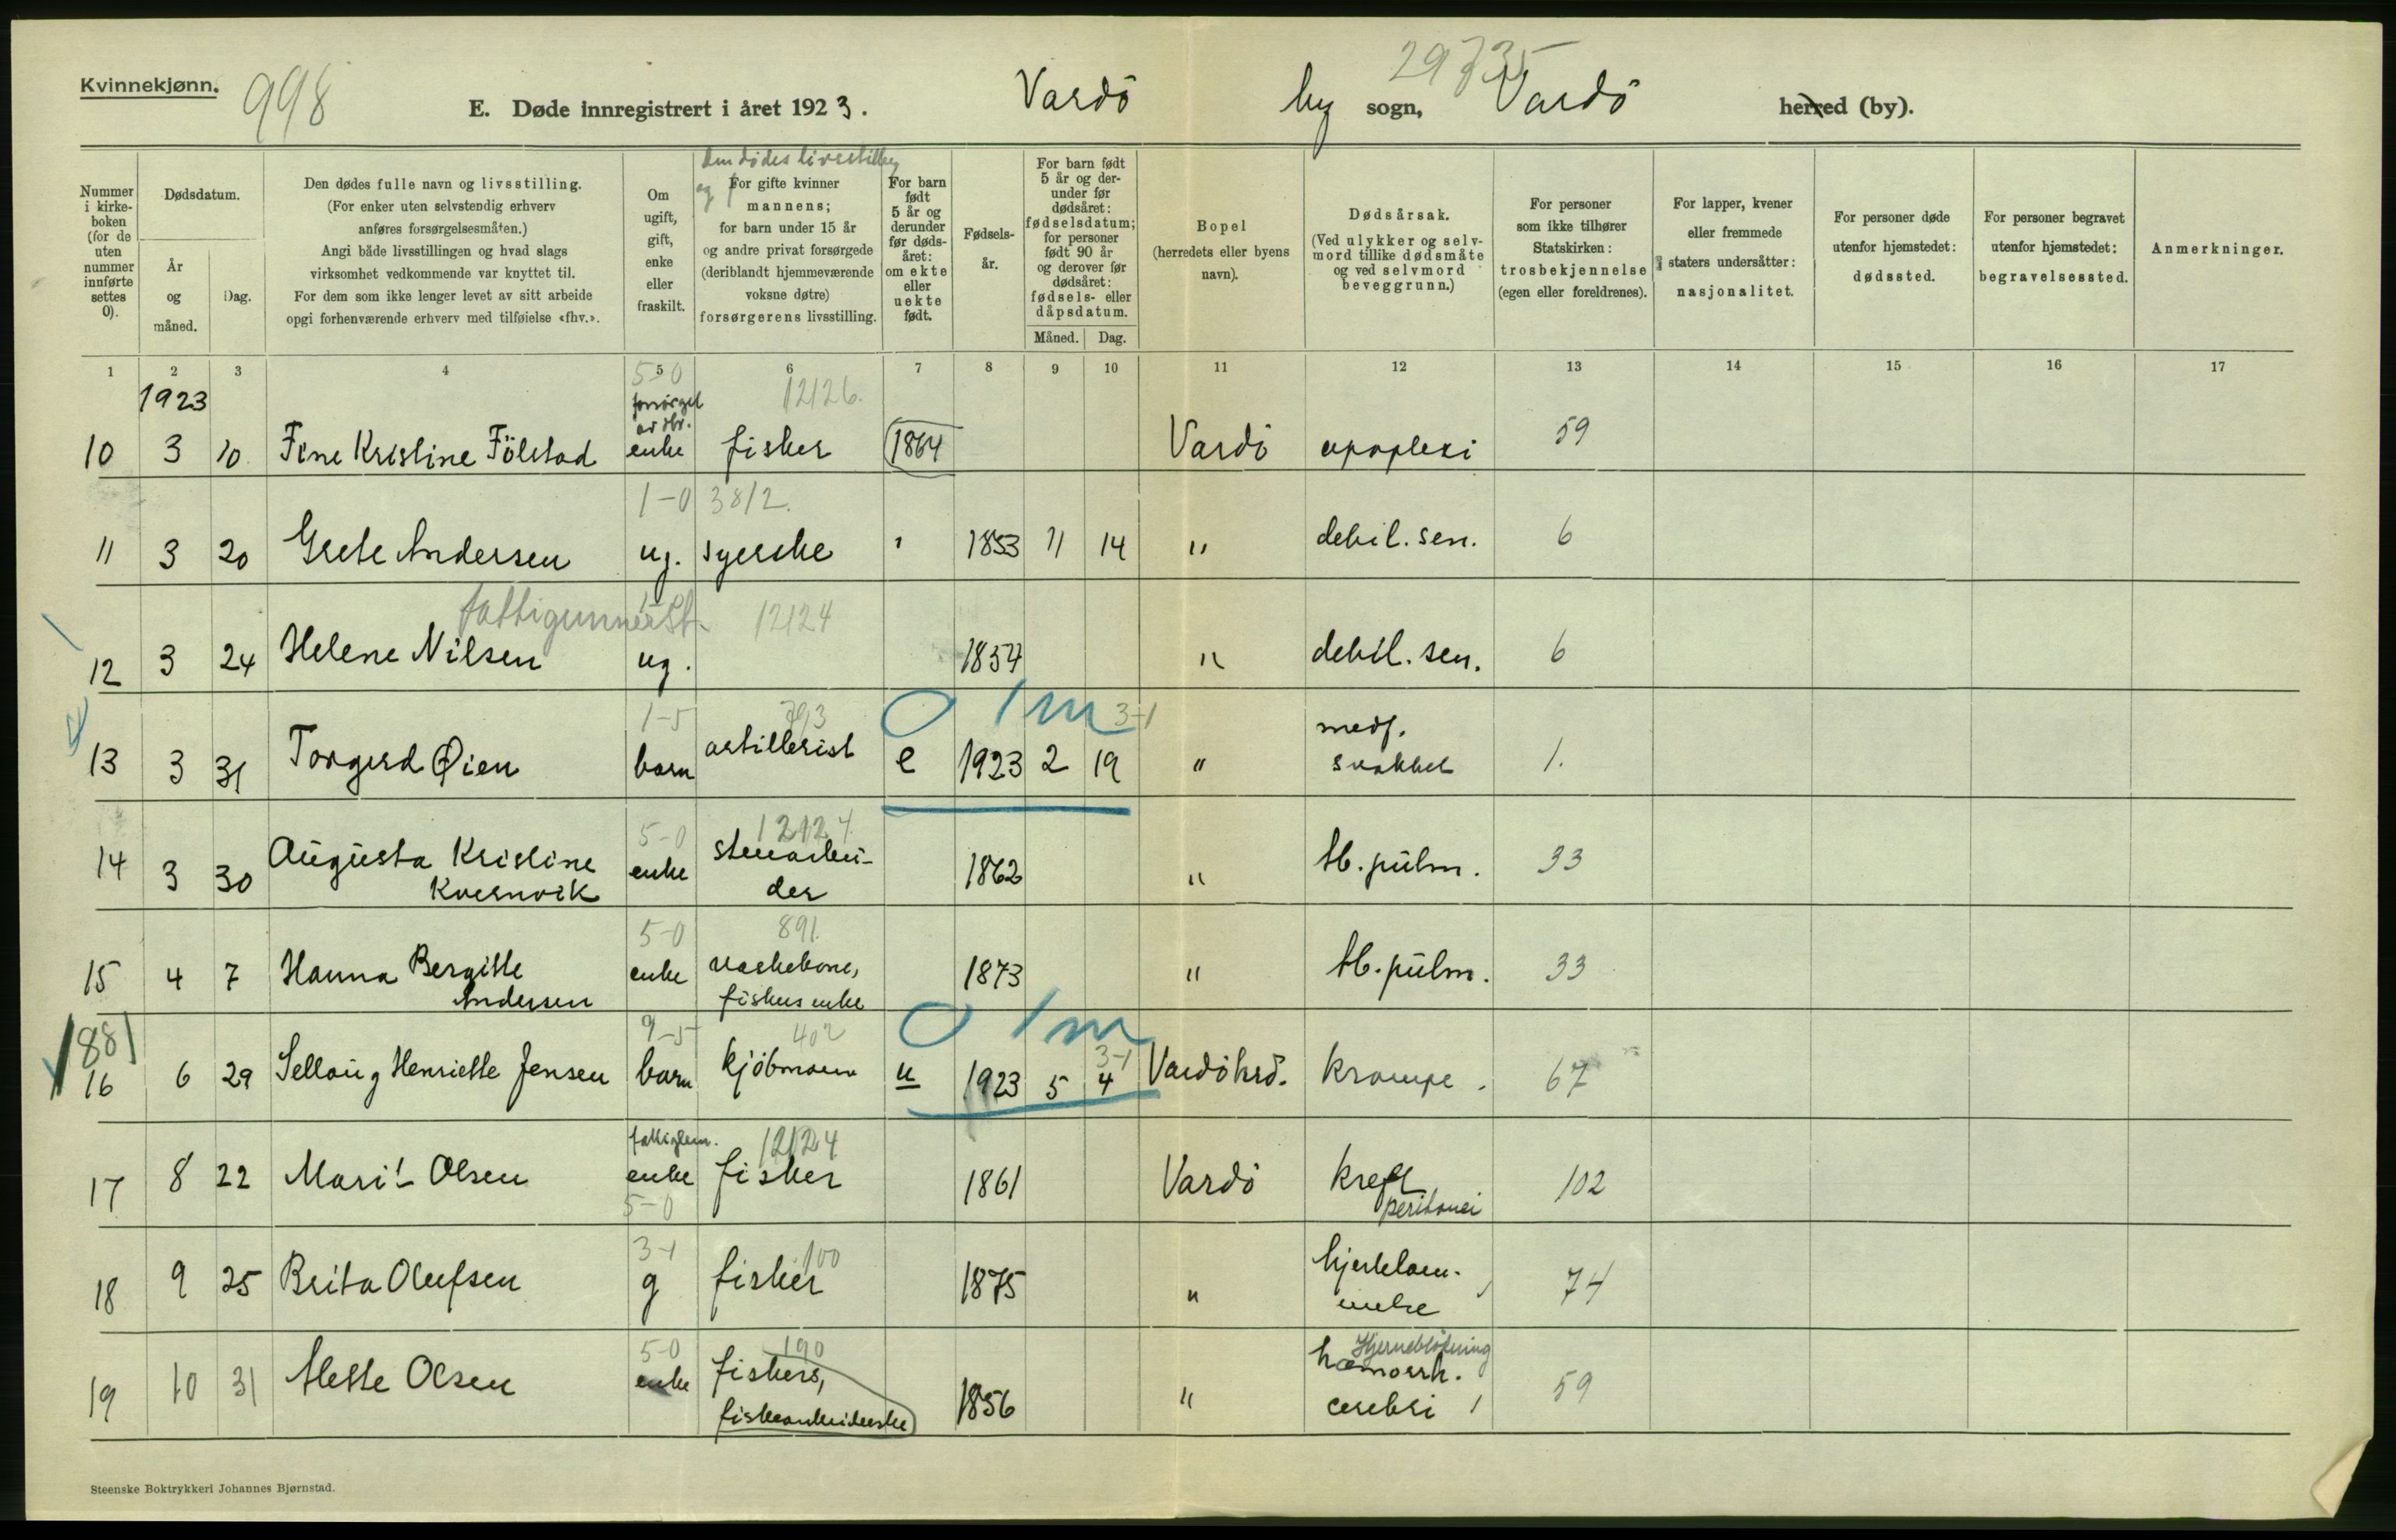 Kvinnekjønn.
998
29735
E. Døde innregistrert i året 1923. Vardö by sogn, Vardö herred (by).
Nummer i kirkeboken (for de uten nummer innførte settes 0).
Dødsdatum.
År og måned.
Dag.
Den dødes fulle navn og livsstilling.
(For enker uten selvstendig erhverv
anføres forsørgelsesmåten.)
Angi både livsstillingen og hvad slags
virksomhet vedkommende var knyttet til.
For dem som ikke lenger levet av sitt arbeide
opgi forhenværende erhverv med tilføielse «fhv.».
Om ugift, gift, enke eller fraskilt.
Den dödes livsstilling
og
For gifte kvinner
mannens;
for barn under 15 år
og andre privat forsørgede
(deriblandt hjemmeværende
voksne døtre)
forsørgerens livsstilling.
For barn født 5 år og derunder før dødsåret: om ekte eller uekte født.
Fødselsår.
For barn født 5 år og derunder før dødsåret: fødselsdatum; for personer født 90 år og derover før dødsåret: fødsels- eller dåpsdatum.
Måned. Dag.
Bopel
(herredets eller byens
navn).
Dødsårsak.
(Ved ulykker og selvmord tillike dødsmåte og ved selvmord beveggrunn.)
For personer
som ikke tilhører
Statskirken:
trosbekjennelse
(egen eller foreldrenes).
For lapper, kvener
eller fremmede
staters undersåtter:
nasjonalitet.
For personer døde
utenfor hjemstedet:
dødssted.
For personer begravet
utenfor hjemstedet:
begravelsessted.
Anmerkninger.
1 2 3 4 5 6 7 8 9 10 11 12 13 14 15 16 17
1923
5-0 12126.
forsörget
10 3 10 Fine Kristine Fölstad enke fisker 1864 Vardö apoplexi 59
1-0 3812.
11 3 20 Grete Andersen ug. syerske 1853 11 14 " debil. sen. 6
fattigunderst. 12124
12 3 24 Helene Nilsen ug. 1857 " debil. sen. 6
0 1m 3-1
1-5 793
13 3 31 Torgerd Øien barn artillerist e 1923 2 19 " medf. svakhet 1.
5-0 12124
14 3 30 Augusta Kristine Kvernvik enke stenarbeider 1862 " tb. pulm. 33
5-0 891
15 4 7 Hanna Bergitte Andersen enke vaskekone, fiskers enke 1873 " tb. pulm. 33
881
9-5 402 0 1m 3-1
16 6 29 Sellaug Henriette Jensen barn kjöbmann u 1923 5 4 Vardöhrd. krampe. 67
fattiglem. 12124
17 8 22 Marit Olsen enke fisker 1861 Vardö kreft peritonei 102
5-0
3-1 100
18 9 25 Brita Olufsen g fisker 1875 " hjertelammelse 74
5-0 190 Hjerneblödning
19 10 31 Mette Olsen enke fiskers, fiskearbeiderske 1856 " hæmorrh. cerebri 59
Steenske Boktrykkeri Johannes Bjørnstad.